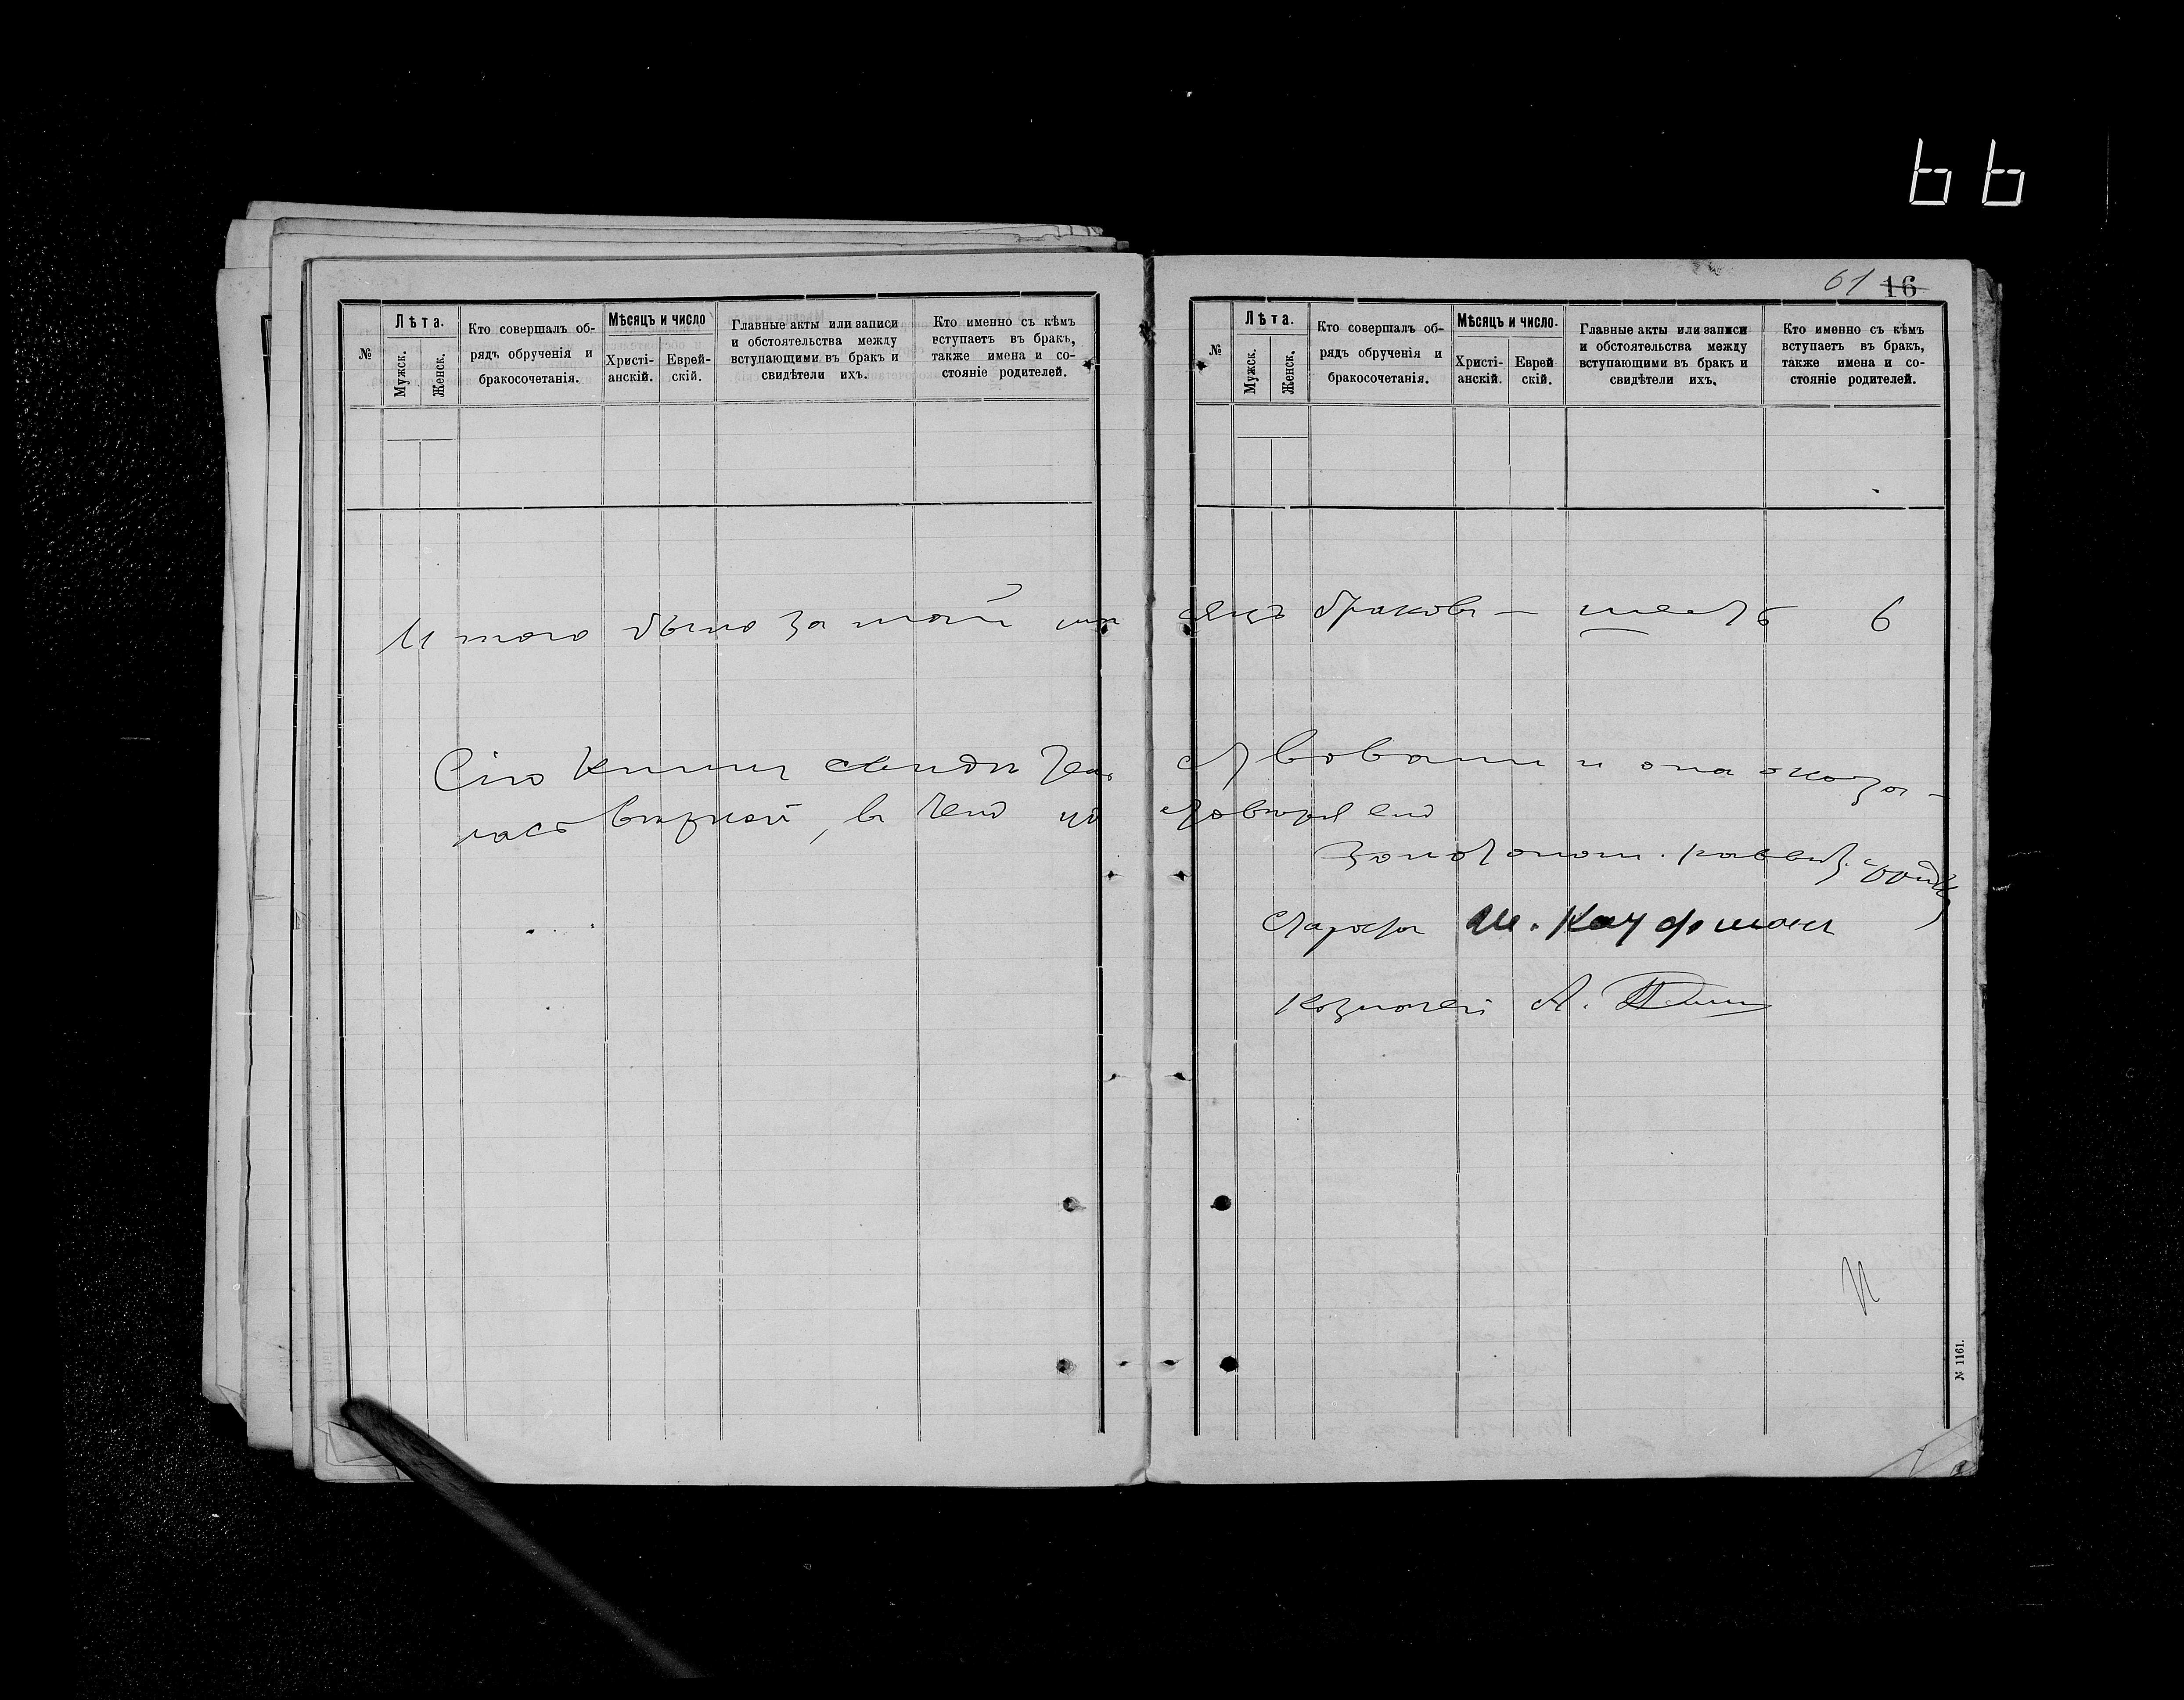 66
61 16
№
Лѣта.
Мужск.
Женск.
Кто совершалъ об-
рядъ обрученія и
бракосочетанія.
Мѣсяцъ и число
Христі-
анскій.
Еврей-
скій.
Главные акты или записи
и обстоятельства между
вступающими въ бракъ и
свидѣтели ихъ.
Кто именно съ кѣмъ
вступаетъ въ бракъ,
также имена и со-
стояніе родителей.
№
Лѣта.
Мужск.
Женск.
Кто совершалъ об-
рядъ обрученія и
бракосочетанія.
Мѣсяцъ и число.
Христі-
анскій.
Еврей
скій.
Главные акты или записи
и обстоятельства между
вступающими въ бракъ и
свидѣтели ихъ.
Кто именно съ кѣмъ
вступаетъ въ бракъ,
также имена и со-
стояніе родителей.
Итого было за май мѣсяцъ браковъ — шесть 6
Сію книгу свидѣтельствовали и она оказа-
лась вѣрной, въ чемъ удостовѣряемъ
Староста Ш. Кауфман
Казначей А.
№ 1161.